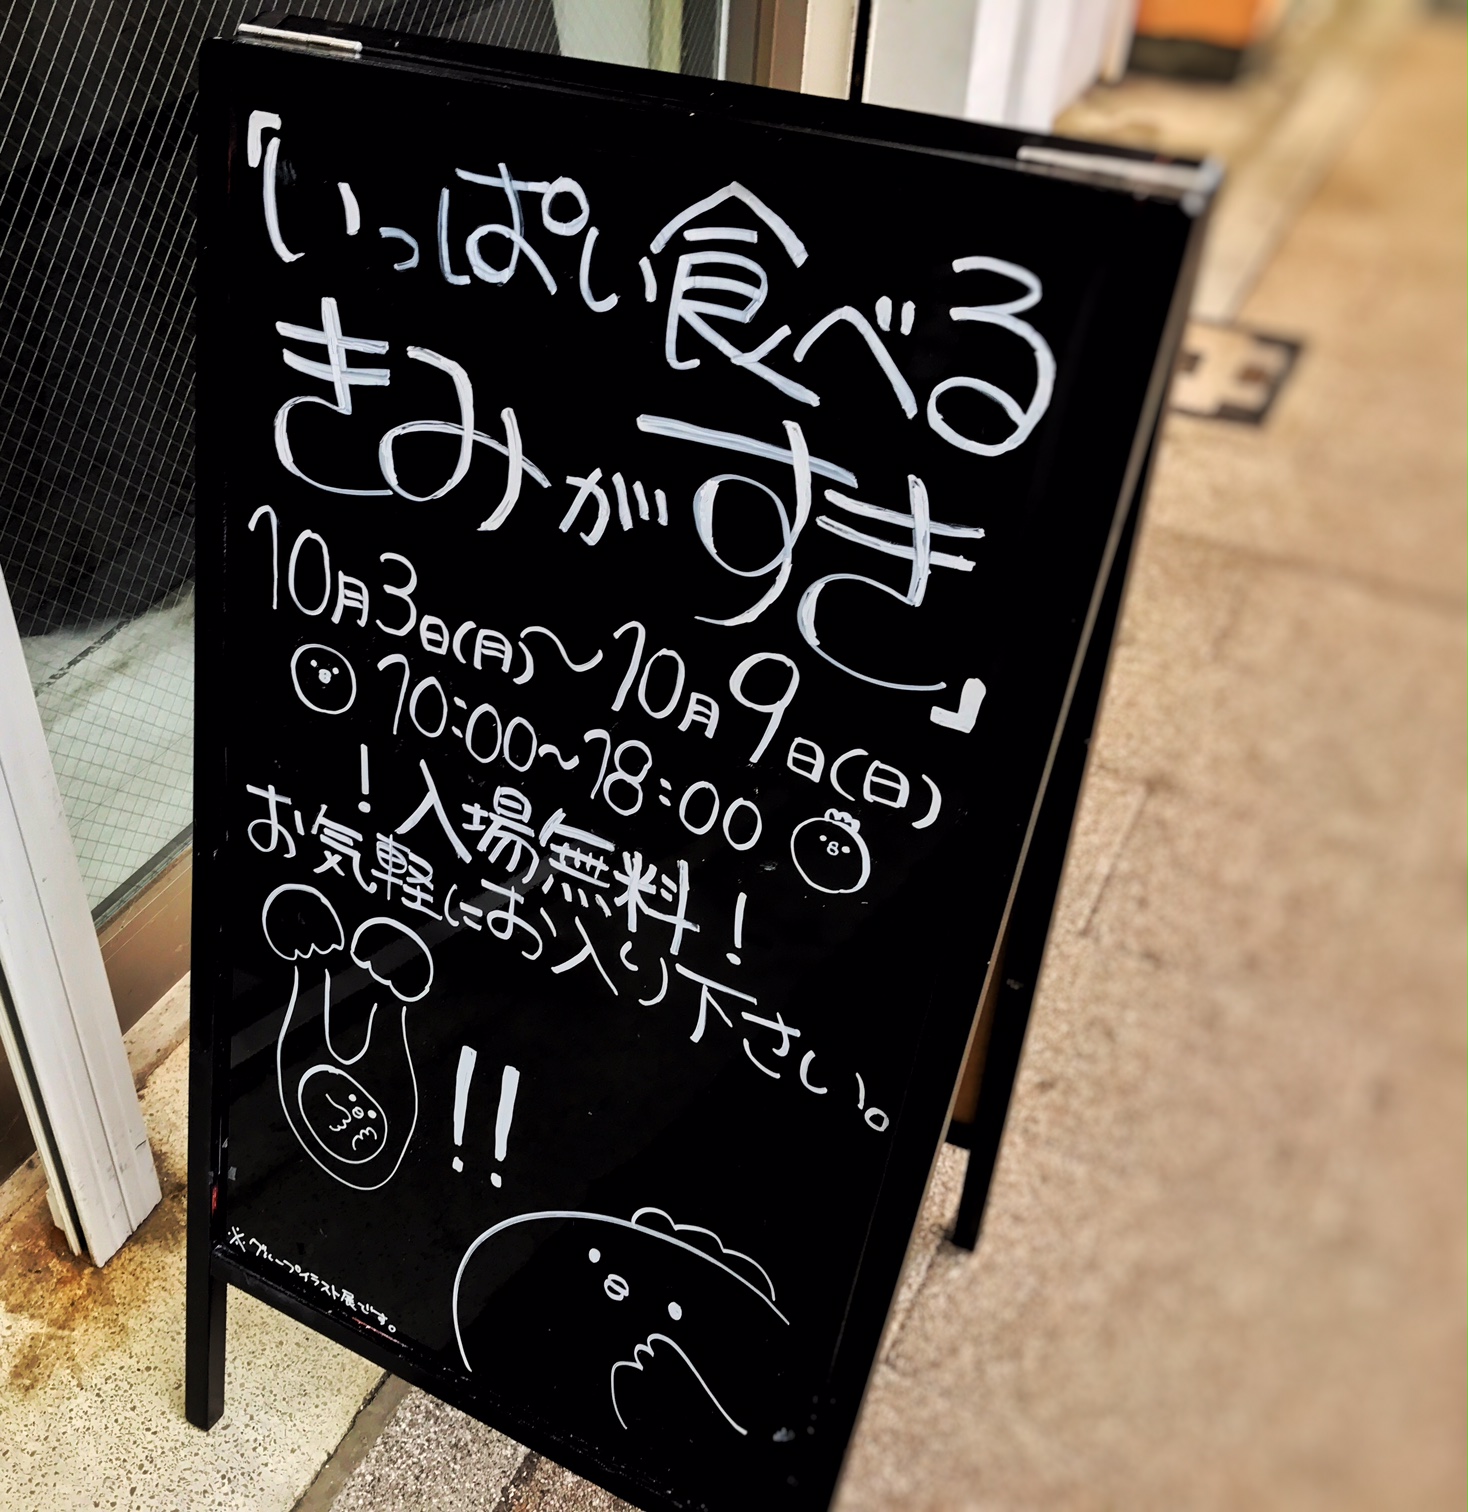 「いっぱい食べる
きみがすき」
10月3日(月)～10月9日(日)
10:00～18:00
！入場無料！
お気軽にお入り下さい。
!!
※グループイラスト展です。